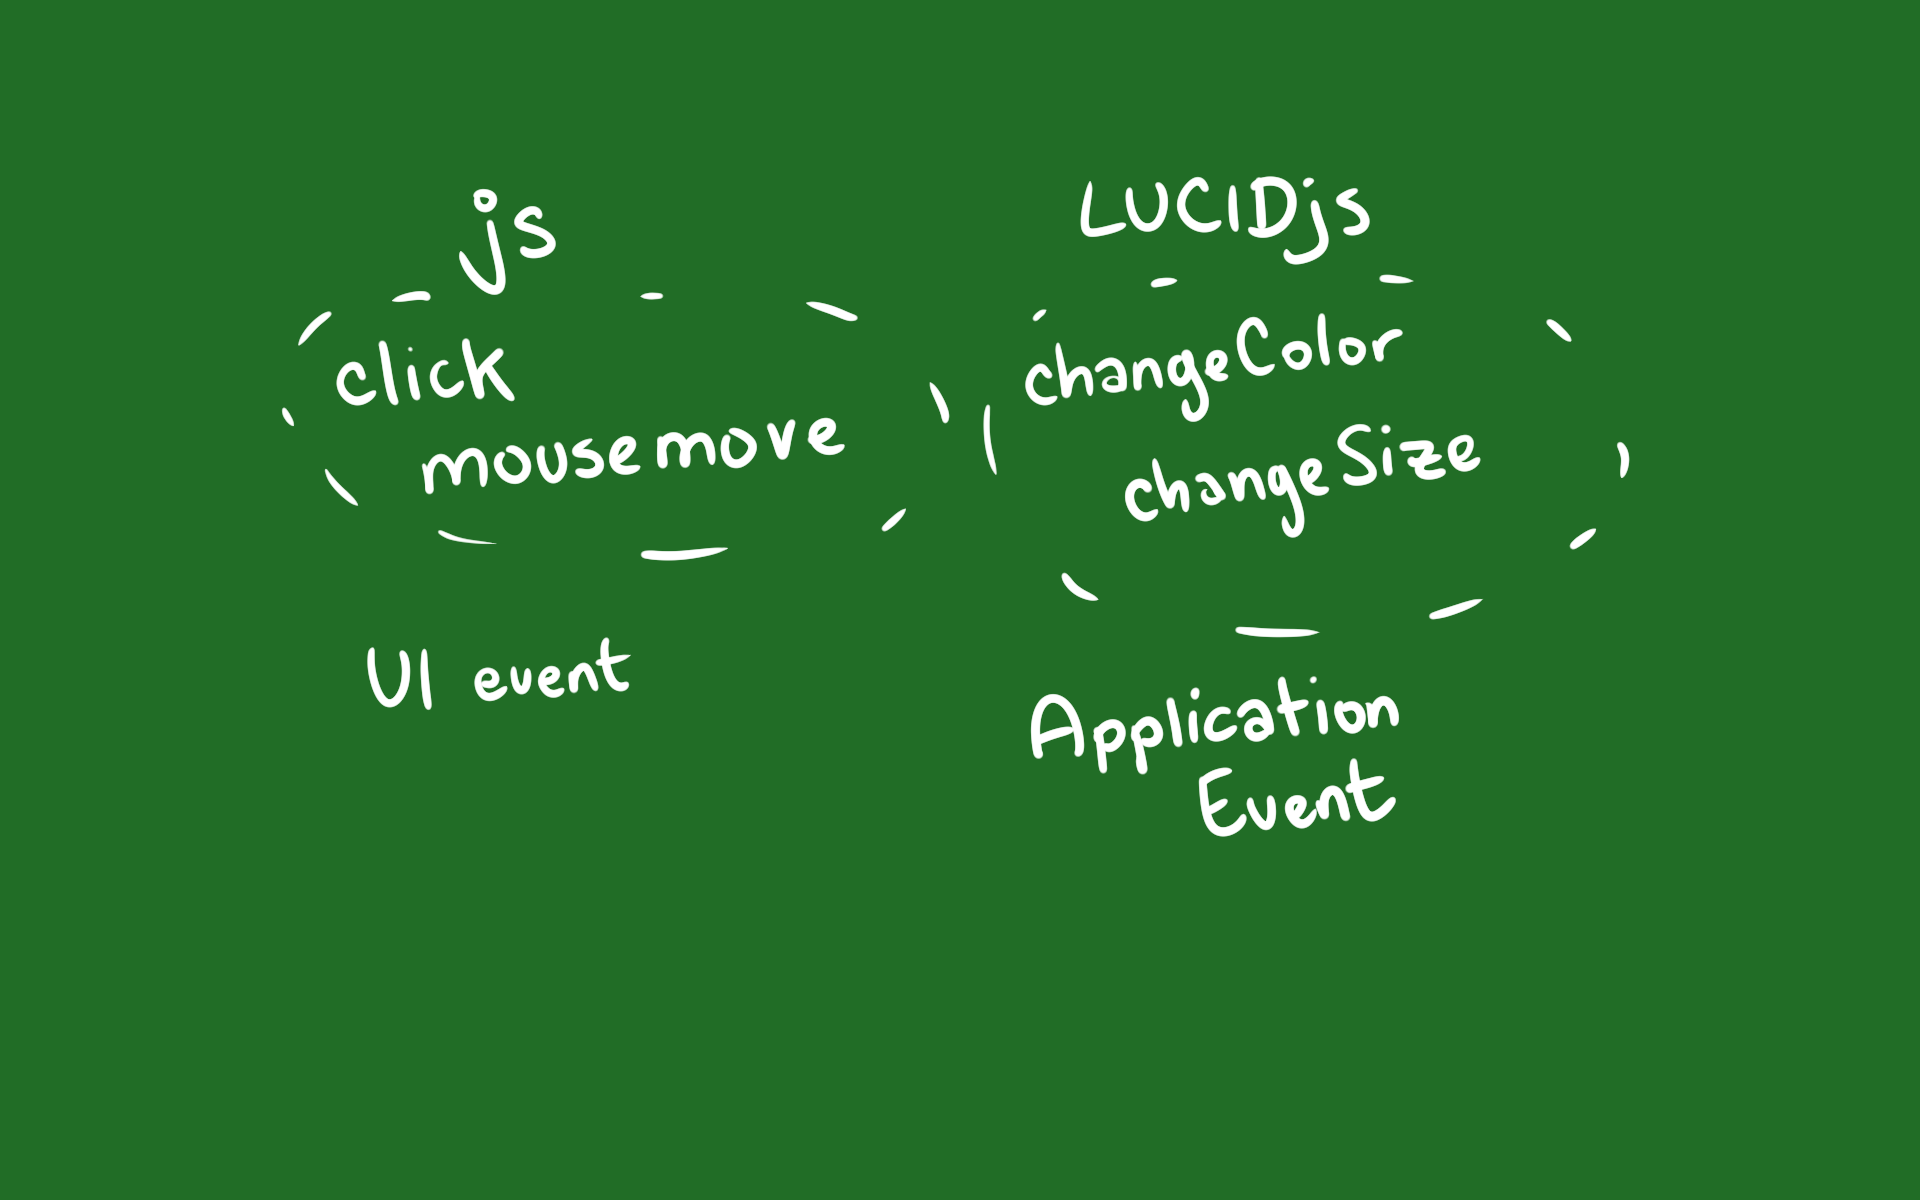 js
click
mousemove
UI event
LUCIDjs
changeColor
changeSize
Application
Event